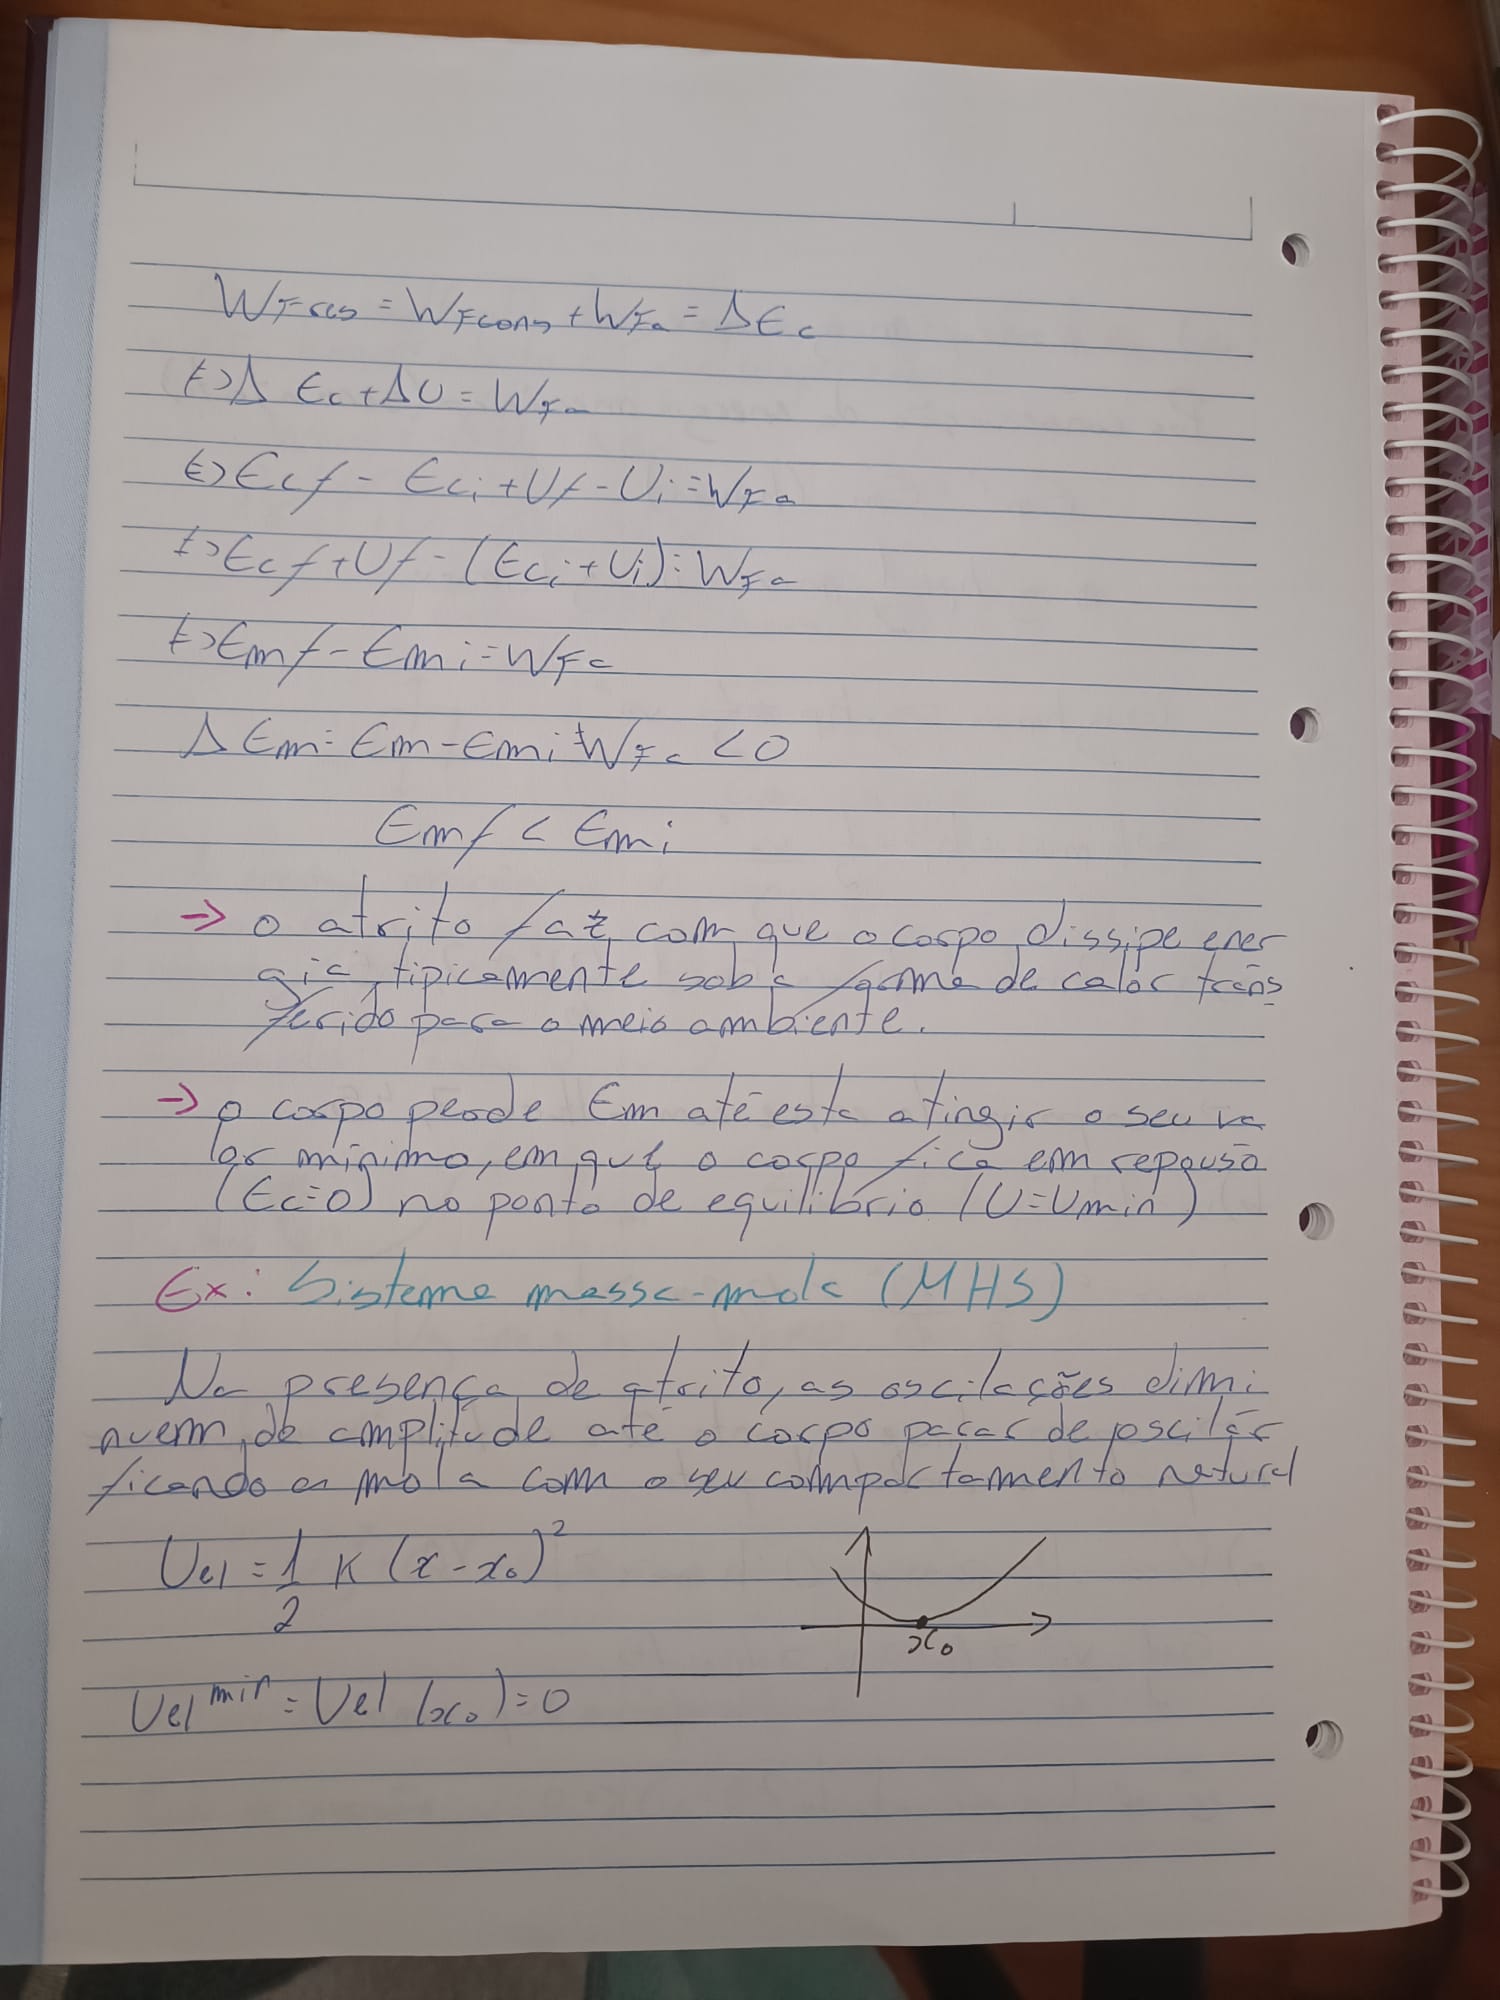 W_Fres = W_Fcons + W_Fa = ΔEc
<=> Δ Ec + ΔU = W_Fa
<=> Ecf - Eci + Uf - Ui = W_Fa
<=> Ecf + Uf - (Eci + Ui) = W_Fa
<=> Emf - Emi = W_Fa
ΔEm = Em - Emi = W_Fa < 0
Emf < Emi
→ o atrito faz com que o corpo dissipe ener
gia, tipicamente sob a forma de calor trans
ferido para o meio ambiente.
→ o corpo perde Em até esta atingir o seu va
lor mínimo, em que o corpo fica em repouso
(Ec=0) no ponto de equilíbrio (U=Umin)
Ex: Sistema massa-mola (MHS)
Na presença de atrito, as oscilações dimi
nuem de amplitude até o corpo parar de oscilar
ficando a mola com o seu comportamento natural
Uel = 1/2 K (x - x₀)²
x₀
Uel^min = Uel (x₀) = 0